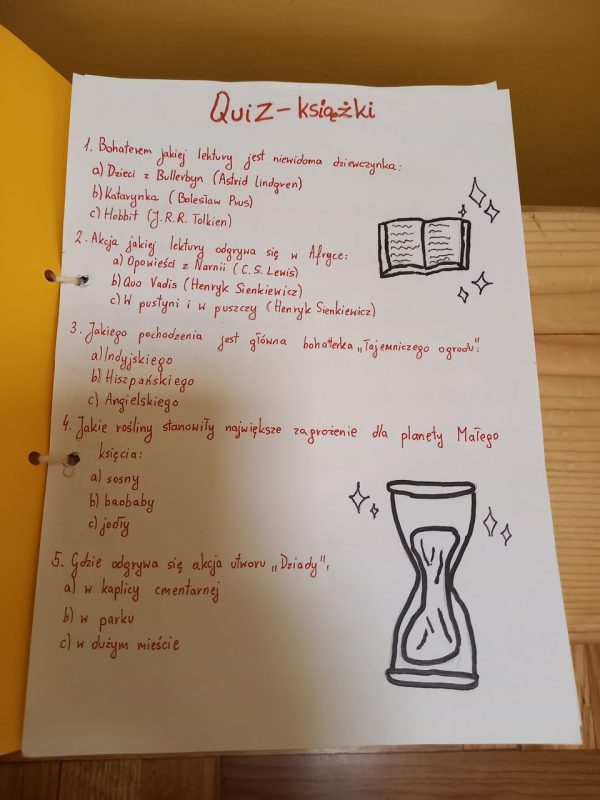 Quiz - książki
1. Bohaterem jakiej lektury jest niewidoma dziewczynka:
a) Dzieci z Bullerbyn (Astrid Lindgren)
b) Katarynka (Bolesław Prus)
c) Hobbit (J.R.R. Tolkien)
2. Akcja jakiej lektury odgrywa się w Afryce:
a) Opowieści z Narnii (C.S. Lewis)
b) Quo Vadis (Henryk Sienkiewicz)
c) W pustyni i w puszczy (Henryk Sienkiewicz)
3. Jakiego pochodzenia jest główna bohaterka „Tajemniczego ogrodu":
a) Indyjskiego
b) Hiszpańskiego
c) Angielskiego
4. Jakie rośliny stanowiły największe zagrożenie dla planety Małego
księcia:
a) sosny
b) baobaby
c) jodły
5. Gdzie odgrywa się akcja utworu „Dziady":
a) w kaplicy cmentarnej
b) w parku
c) w dużym mieście